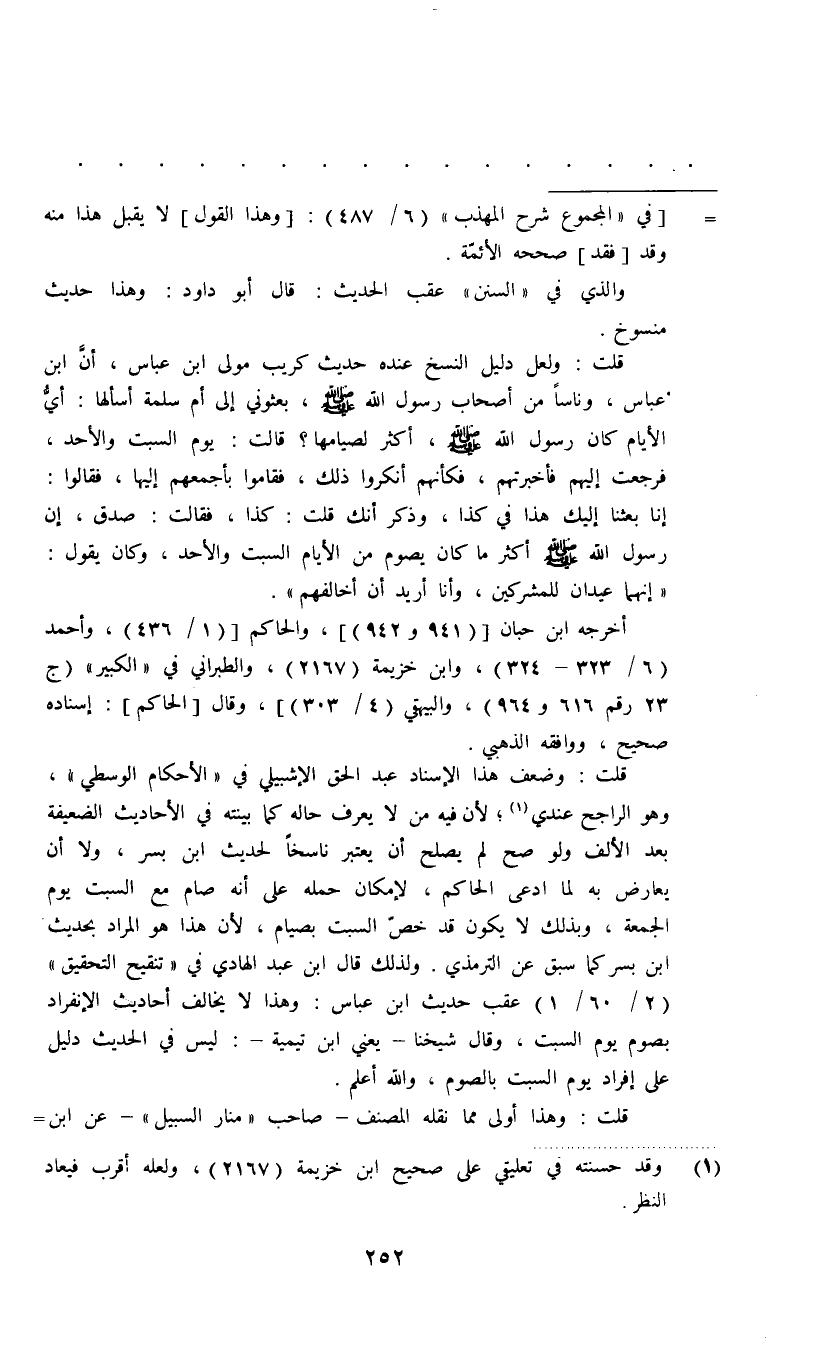 = [ في « المجموع شرح المهذب » ( ٦ / ٤٨٧ ) : [ وهذا القول ] لا يقبل هذا منه
وقد [ فقد ] صححه الأئمّة .
والذي في « السنن » عقب الحديث : قال أبو داود : وهذا حديث
منسوخ .
قلت : ولعل دليل النسخ عنده حديث كريب مولى ابن عباس ، أنَّ ابن
عباس ، وناساً من أصحاب رسول الله ﷺ ، بعثوني إلى أم سلمة أسألها : أيُّ
الأيام كان رسول الله ﷺ ، أكثر لصيامها ؟ قالت : يوم السبت والأحد ،
فرجعت إليهم فأخبرتهم ، فكأنهم أنكروا ذلك ، فقاموا بأجمعهم إليها ، فقالوا :
إنا بعثنا إليك هذا في كذا ، وذكر أنك قلت : كذا ، فقالت : صدق ، إن
رسول الله ﷺ أكثر ما كان يصوم من الأيام السبت والأحد ، وكان يقول :
« إنهما عيدان للمشركين ، وأنا أريد أن أخالفهم » .
أخرجه ابن حبان [ ( ٩٤١ و ٩٤٢ ) ] ، والحاكم [ ( ١ / ٤٣٦ ) ، وأحمد
( ٦ / ٣٢٣ – ٣٢٤ ) ، وابن خزيمة ( ٢١٦٧ ) ، والطبراني في « الكبير » ( ج
٢٣ رقم ٦١٦ و ٩٦٤ ) ، والبيهقي ( ٤ / ٣٠٣ ) ] ، وقال [ الحاكم ] : إسناده
صحيح ، ووافقه الذهبي .
قلت : وضعف هذا الإسناد عبد الحق الإشبيلي في « الأحكام الوسطي » ،
وهو الراجح عندي (١) ؛ لأن فيه من لا يعرف حاله كما بينته في الأحاديث الضعيفة
بعد الألف ولو صح لم يصلح أن يعتبر ناسخاً لحديث ابن بسر ، ولا أن
يعارض به لما ادعى الحاكم ، لإمكان حمله على أنه صام مع السبت يوم
الجمعة ، وبذلك لا يكون قد خصّ السبت بصيام ، لأن هذا هو المراد بحديث
ابن بسر كما سبق عن الترمذي . ولذلك قال ابن عبد الهادي في « تنقيح التحقيق »
( ٢ / ٦٠ / ١ ) عقب حديث ابن عباس : وهذا لا يخالف أحاديث الإنفراد
بصوم يوم السبت ، وقال شيخنا – يعني ابن تيمية – : ليس في الحديث دليل
على إفراد يوم السبت بالصوم ، والله أعلم .
قلت : وهذا أولى مما نقله المصنف – صاحب « منار السبيل » – عن ابن =
(١) وقد حسنته في تعليقي على صحيح ابن خزيمة ( ٢١٦٧ ) ، ولعله أقرب فيعاد
النظر .
٢٥٢